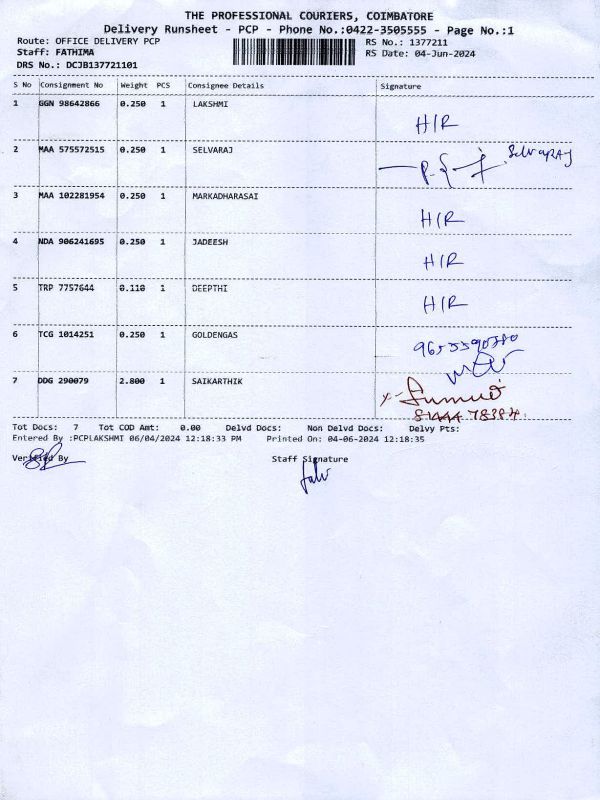 THE PROFESSIONAL COURIERS, COIMBATORE
Delivery Runsheet - PCP - Phone No.:0422-3505555 - Page No.:1
Route: OFFICE DELIVERY PCP RS No.: 1377211
Staff: FATHIMA RS Date: 04-Jun-2024
DRS No.: DCJB137721101
S No Consignment No Weight PCS Consignee Details Signature
1 GGN 98642866 0.250 1 LAKSHMI
H/R
2 MAA 575572515 0.250 1 SELVARAJ
Selvaraj
3 MAA 102281954 0.250 1 MARKADHARASAI
H/R
4 NDA 906241695 0.250 1 JADEESH
H/R
5 TRP 7757644 0.110 1 DEEPTHI
H/R
6 TCG 1014251 0.250 1 GOLDENGAS
7 DDG 290079 2.800 1 SAIKARTHIK
Tot Docs: 7 Tot COD Amt: 0.00 Delvd Docs: Non Delvd Docs: Delvy Pts:
Entered By :PCPLAKSHMI 06/04/2024 12:18:33 PM Printed On: 04-06-2024 12:18:35
Verified By Staff Signature